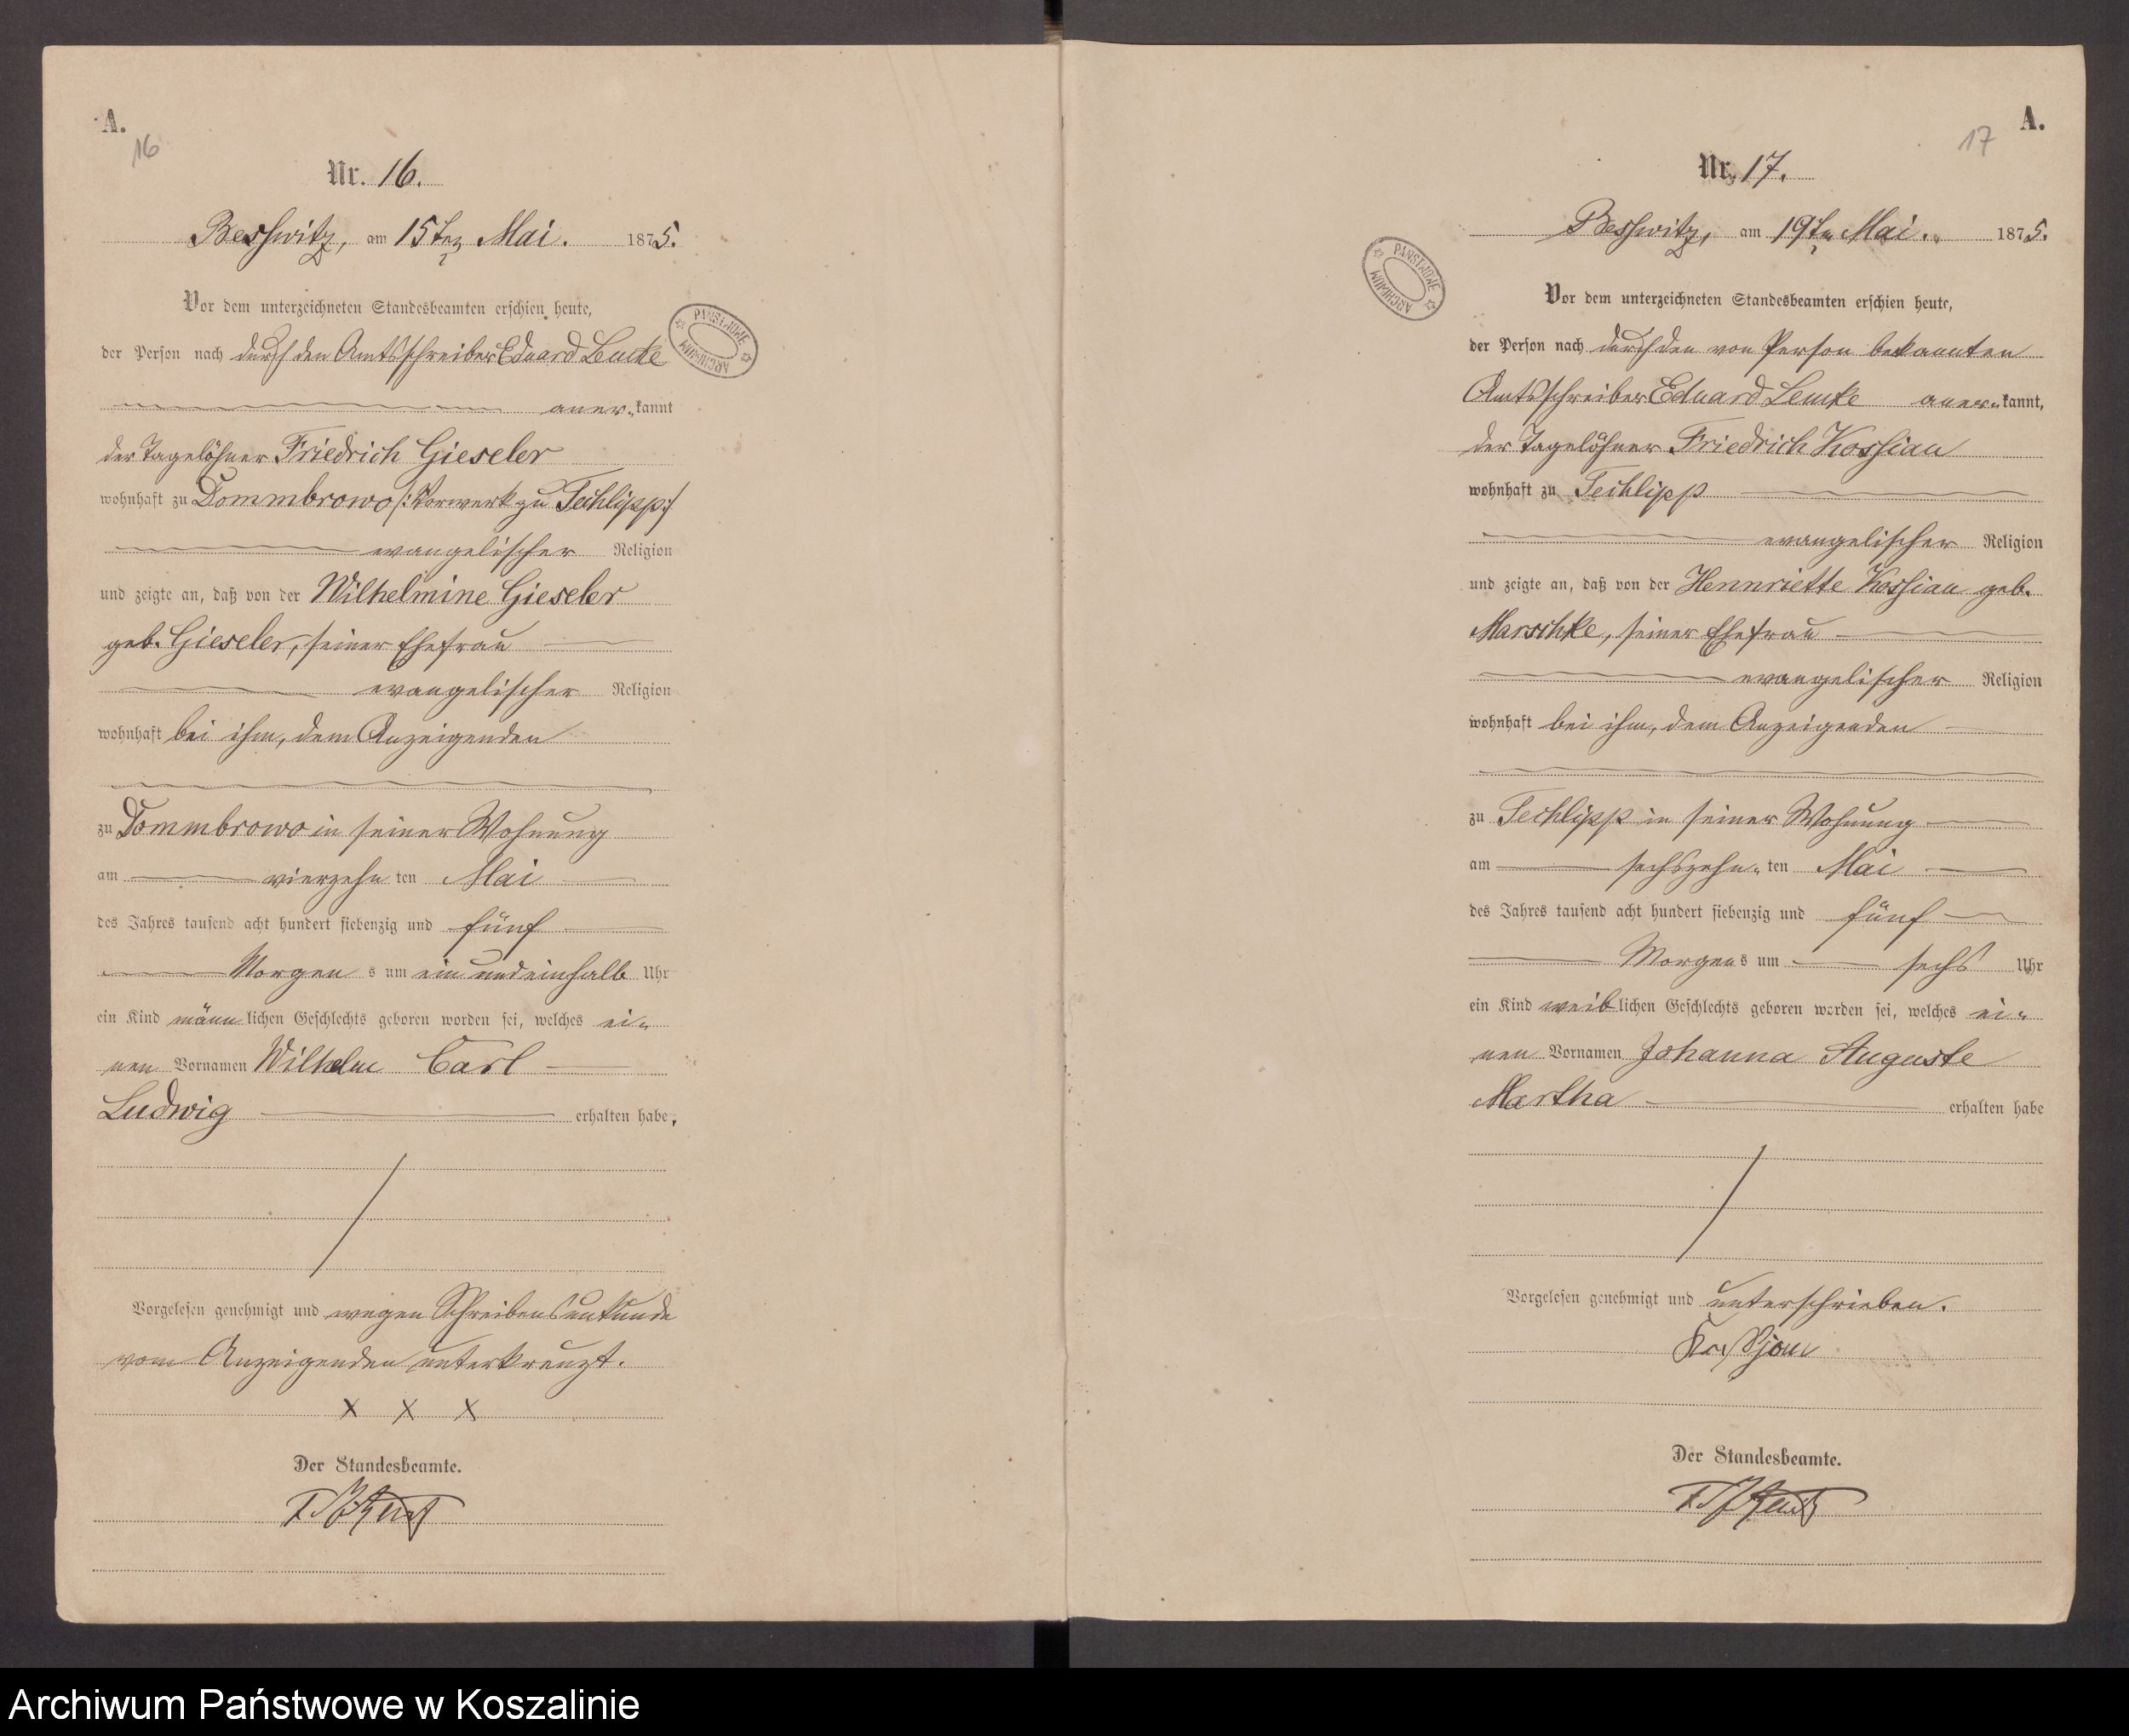 A.
16
Nr. 16.
Besswitz, am 15ten Mai. 1875.
Vor dem unterzeichneten Standesbeamten erschien heute,
der Person nach durch den Amtsschreiber Eduard Lemke
aner-kannt
der Tagelöhner Friedrich Gieseler
wohnhaft zu Dommbrowo /:Vorwerk zu Techlipp:/
evangelischer Religion
und zeigte an, daß von der Wilhelmine Gieseler
geb. Gieseler, seiner Ehefrau
evangelischer Religion
wohnhaft bei ihm, dem Anzeigenden
zu Dommbrowo in seiner Wohnung
am vierzehnten Mai
des Jahres tausend acht hundert siebenzig und fünf
Morgens um ein und einhalb Uhr
ein Kind männlichen Geschlechts geboren worden sei, welches ei-
nen Vornamen Wilhelm Carl
Ludwig erhalten habe.
Vorgelesen genehmigt und wegen Schreibensunkunde
vom Anzeigenden unterkreuzt.
x x x
Der Standesbeamte.
PAŃSTWOWE
ARCHIWUM
A.
17
Nr. 17.
Besswitz, am 19ten Mai. 1875.
Vor dem unterzeichneten Standesbeamten erschien heute,
der Person nach durch den von Person bekannten
Amtsschreiber Eduard Lemke aner-kannt,
der Tagelöhner Friedrich Kossian
wohnhaft zu Techlipp
evangelischer Religion
und zeigte an, daß von der Hennriette Kossian geb.
Marschke, seiner Ehefrau
evangelischer Religion
wohnhaft bei ihm, dem Anzeigenden
zu Techlipp in seiner Wohnung
am sechszehn-ten Mai
des Jahres tausend acht hundert siebenzig und fünf
Morgens um sechs Uhr
ein Kind weiblichen Geschlechts geboren worden sei, welches ei-
nen Vornamen Johanna Auguste
Martha erhalten habe
Vorgelesen genehmigt und unterschrieben.
Der Standesbeamte.
PAŃSTWOWE
ARCHIWUM
Archiwum Państwowe w Koszalinie